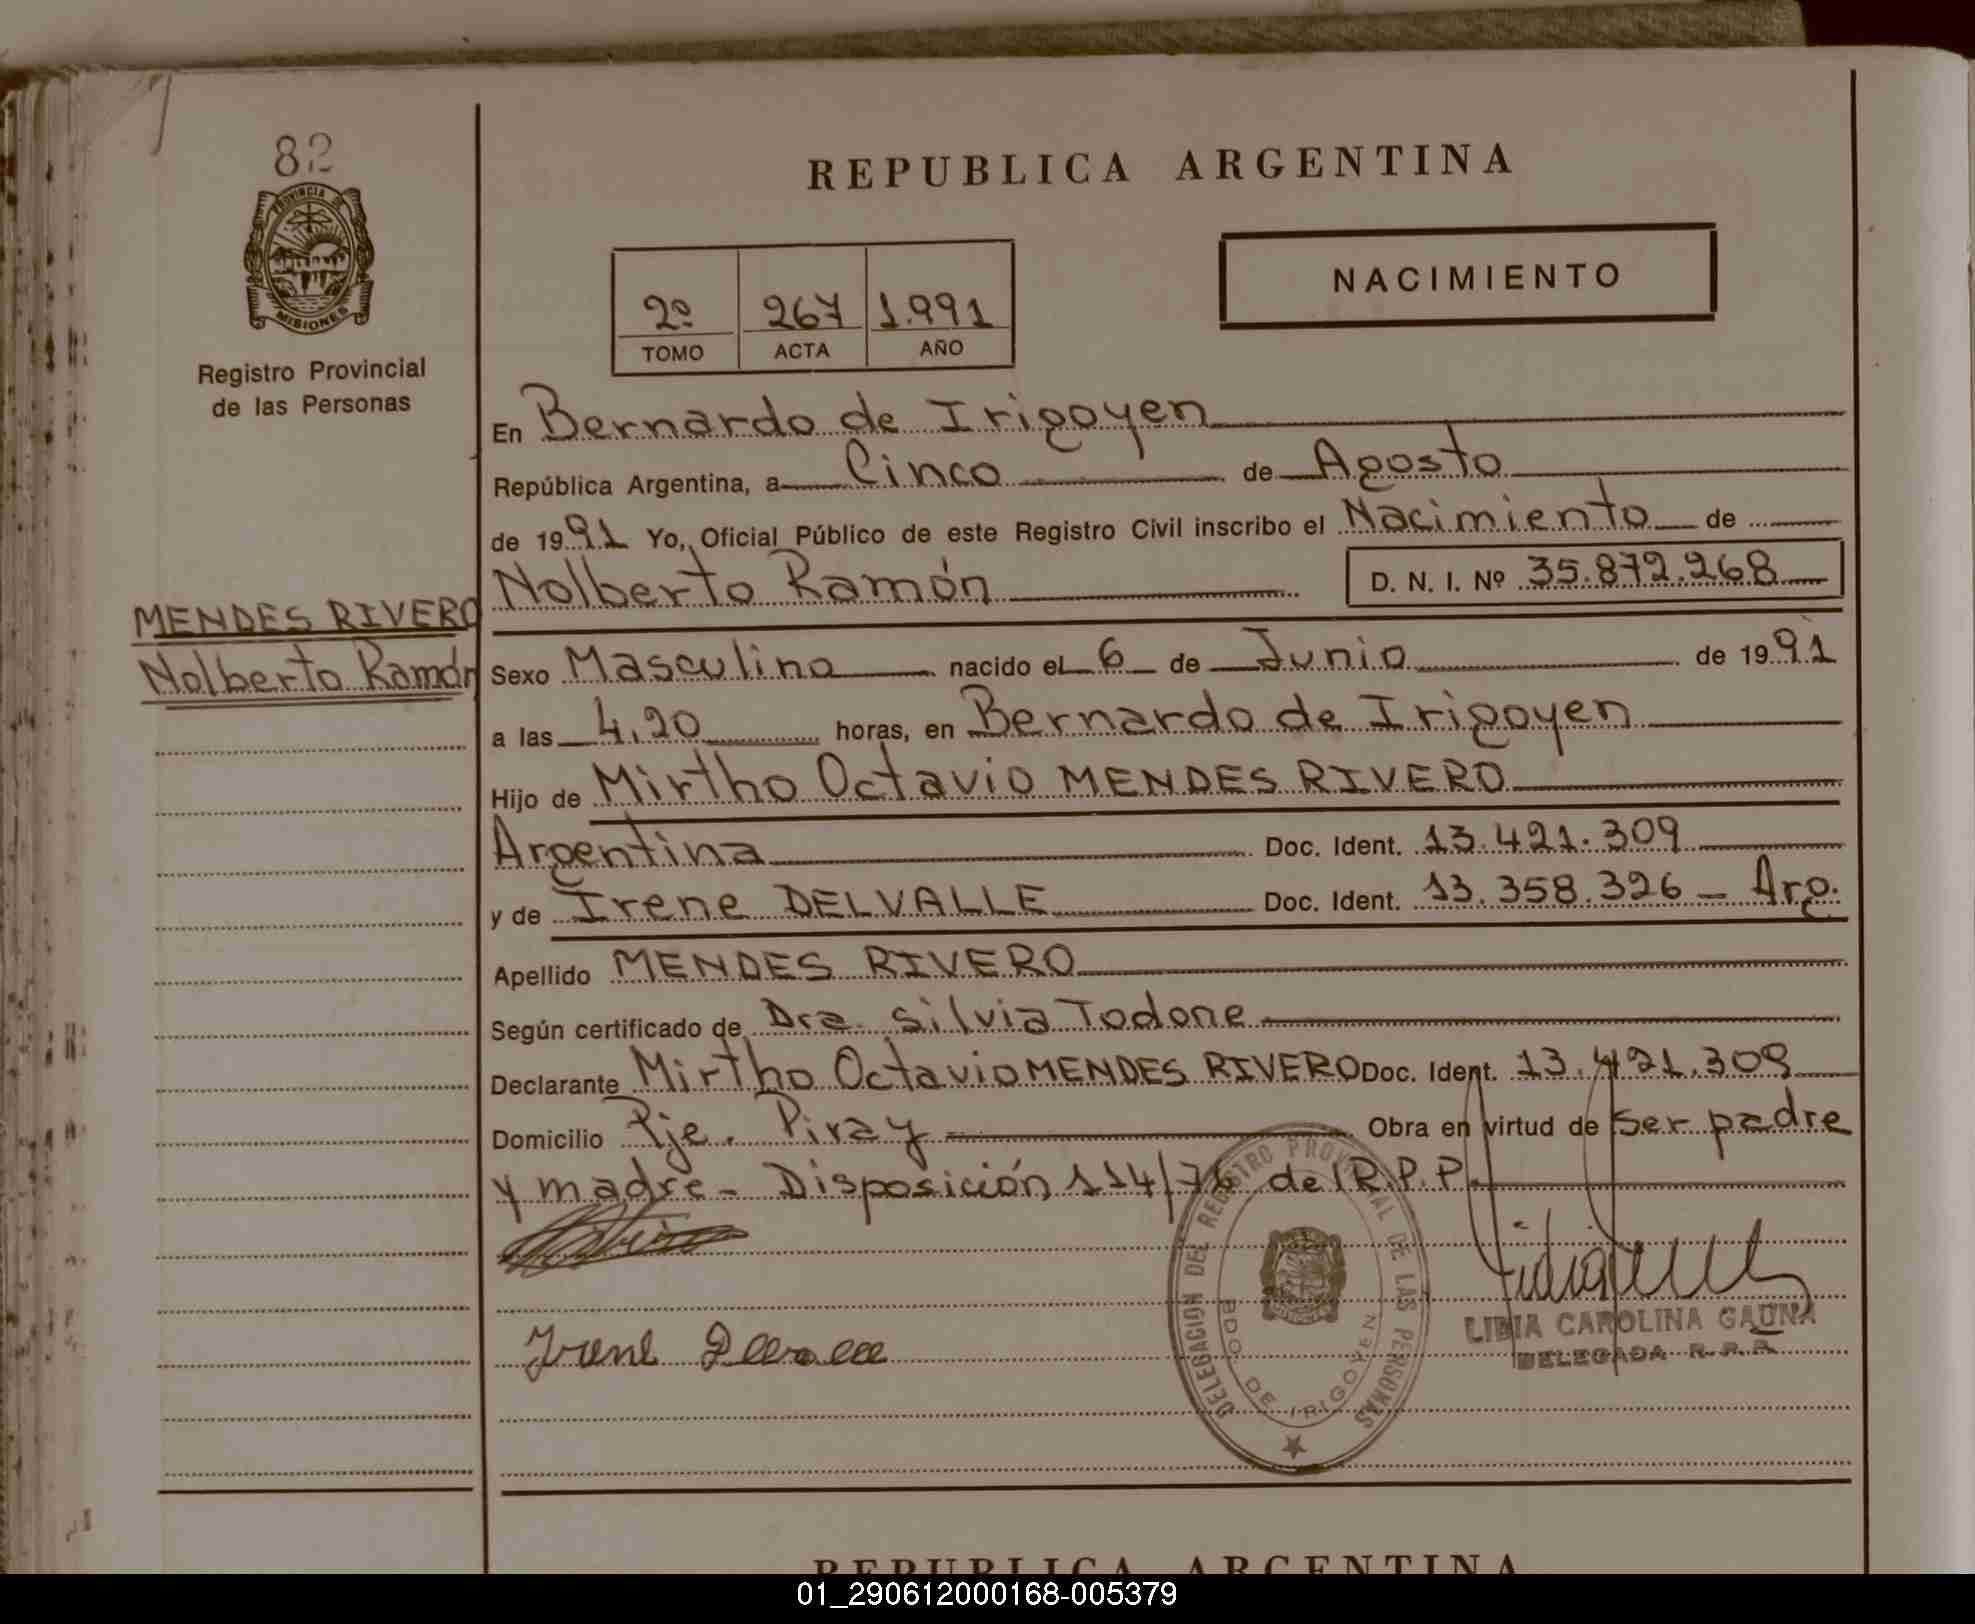 82
PROVINCIA DE
MISIONES
Registro Provincial
de las Personas
MENDES RIVERO
Nolberto Ramón
REPUBLICA ARGENTINA
NACIMIENTO
2º 267 1.991
TOMO ACTA AÑO
En Bernardo de Irigoyen
República Argentina, a Cinco de Agosto
de 1991 Yo, Oficial Público de este Registro Civil inscribo el Nacimiento de
Nolberto Ramón D. N. I. Nº 35.872.268
Sexo Masculino nacido el 6 de Junio de 1991
a las 4,20 horas, en Bernardo de Irigoyen
Hijo de Mirtho Octavio MENDES RIVERO
Argentina Doc. Ident. 13.421.309
y de Irene DELVALLE Doc. Ident. 13.358.326 - Arg.
Apellido MENDES RIVERO
Según certificado de Dra. Silvia Todone
Declarante Mirtho Octavio MENDES RIVERO Doc. Ident. 13.421.309
Domicilio Pje. Piray Obra en virtud de ser padre
y madre - Disposición 114/76 del R.P.P.
Irene Delvalle
DELEGACION DEL REGISTRO PROVINCIAL DE LAS PERSONAS
BDO. DE IRIGOYEN
LIDIA CAROLINA GAUNA
DELEGADA R.P.P.
REPUBLICA ARGENTINA
01_290612000168-005379